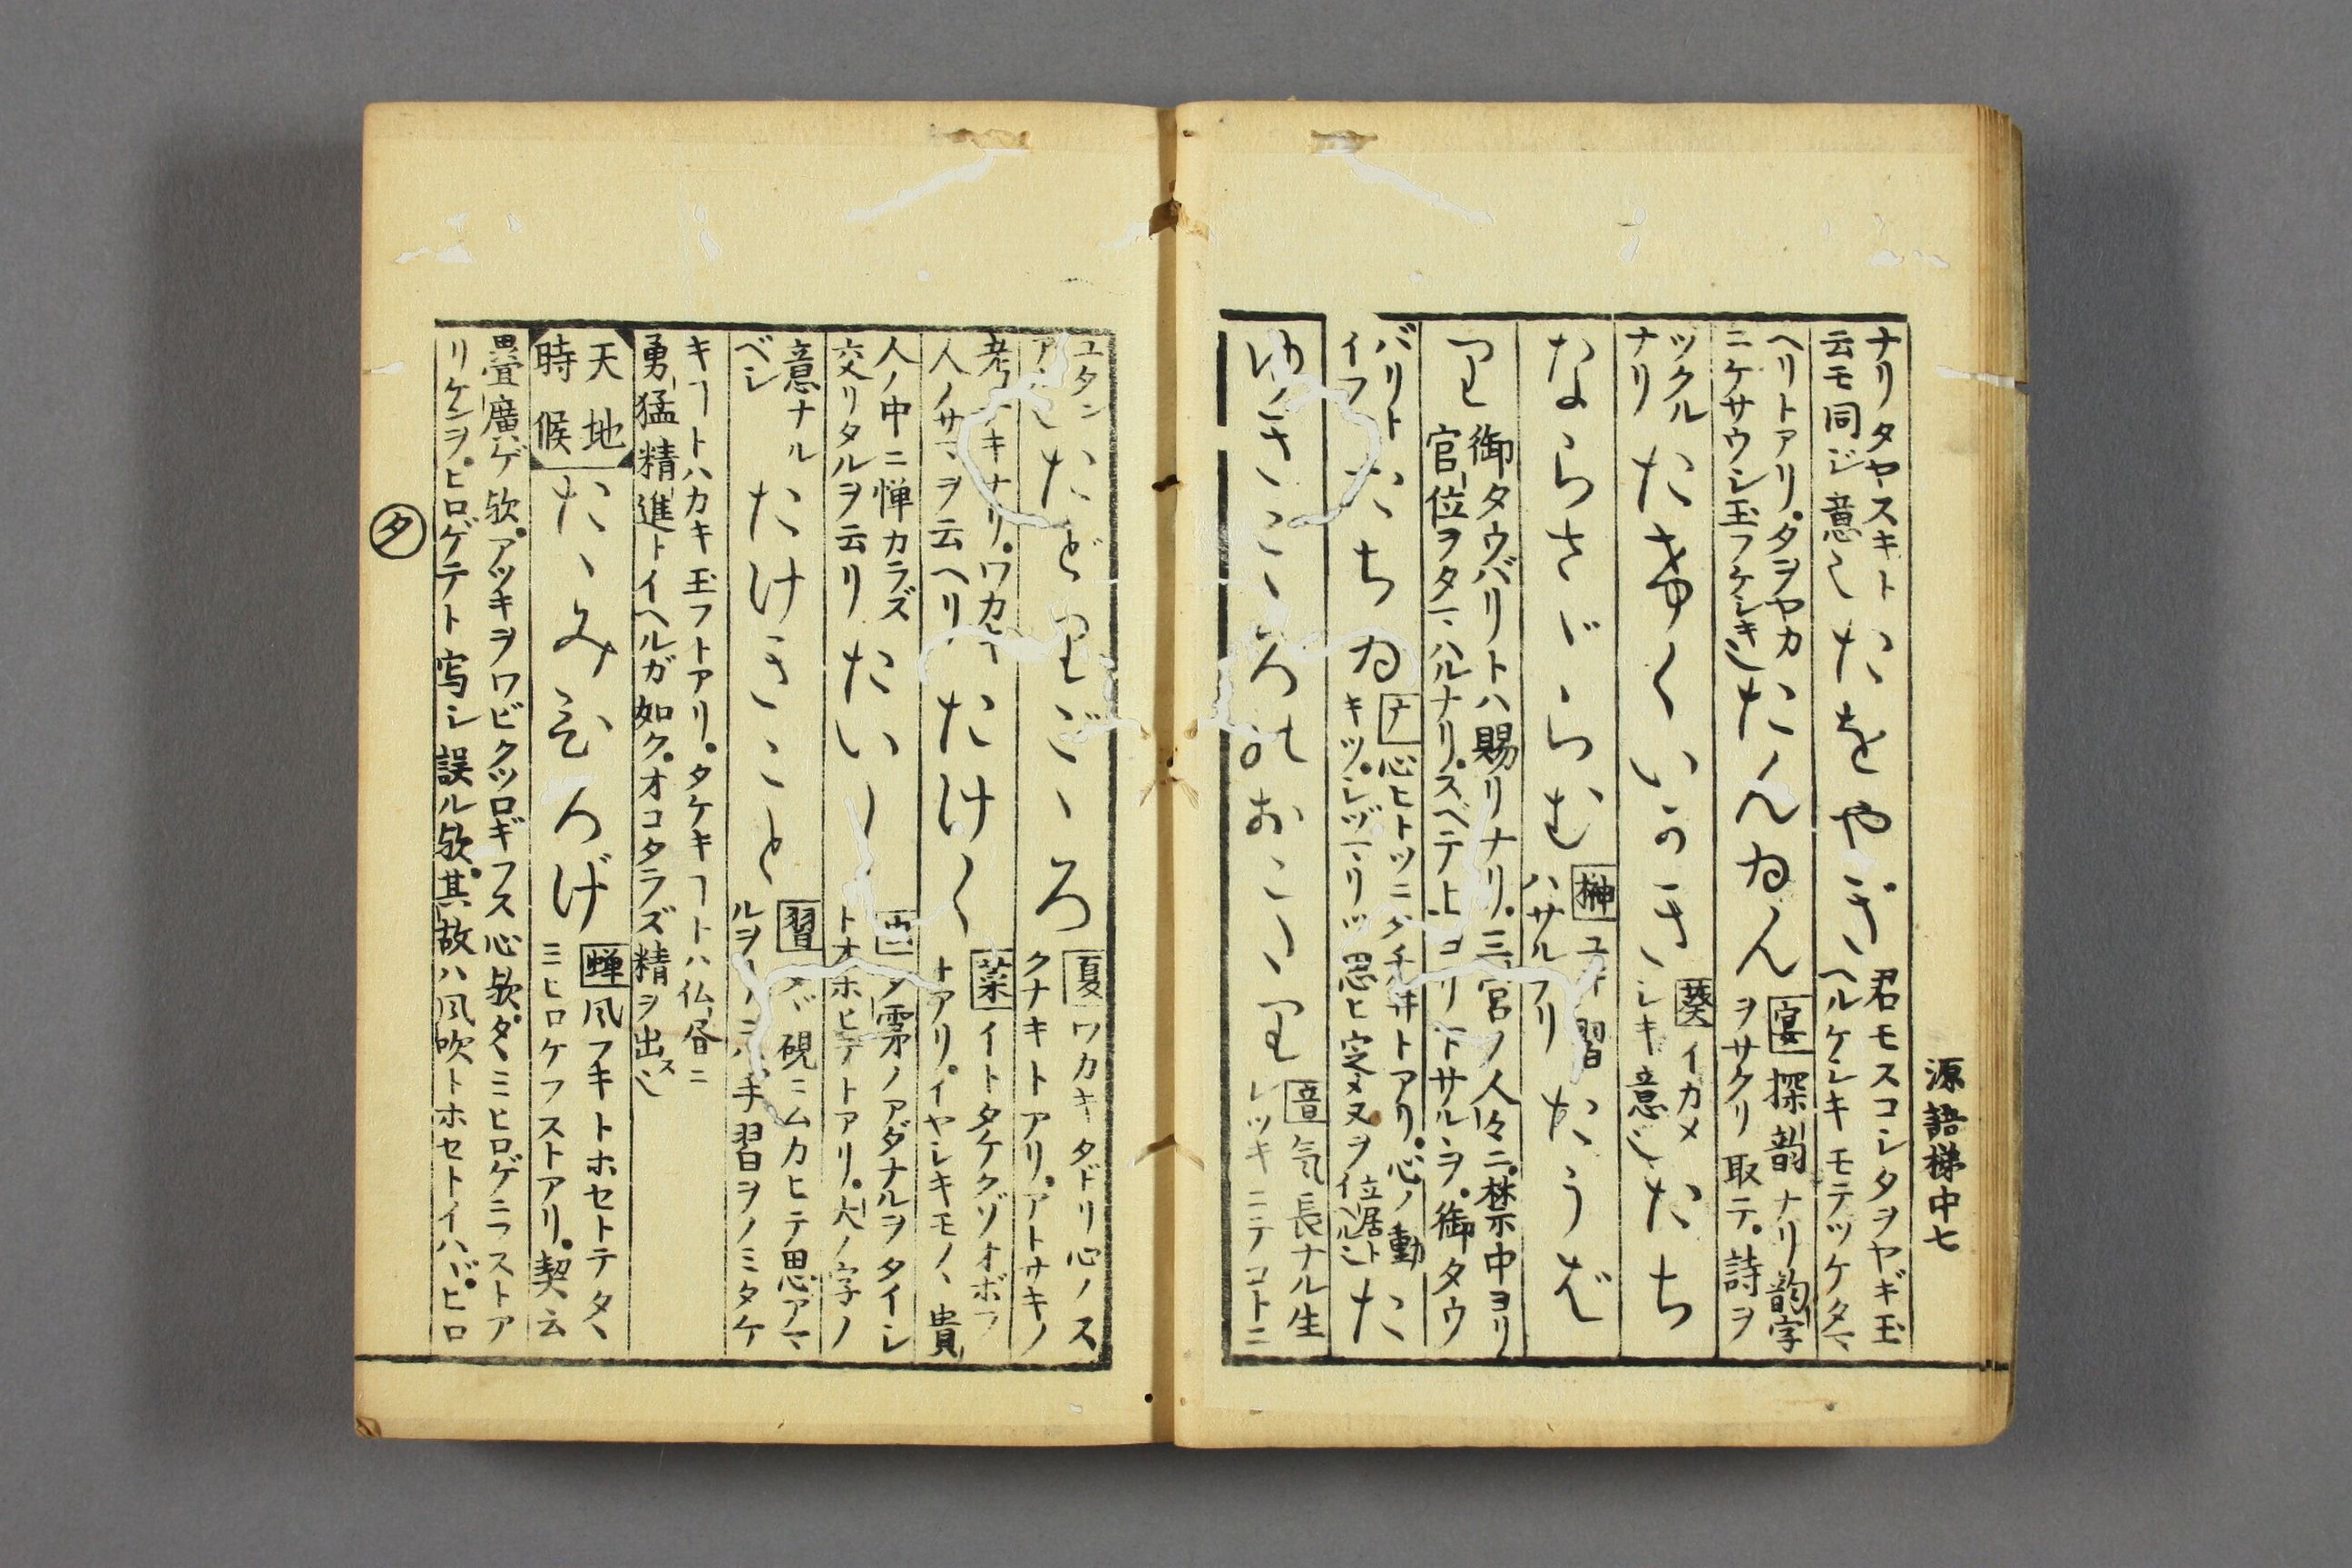 源語梯中七
ナリタヤスキト
云モ同ジ意也
たをやぎ
君モスコシタヲヤギ玉
ヘルケシキモテツケタマ
ヘリトアリ。タヲヤカ
ニケサウシ玉フケシキ也
たんゐん
宴
探韻ナリ韵字
ヲサクリ取テ。詩ヲ
ツクル
ナリ
たけ〳〵いかき
葵
イカメ
シキ意也
たち
ならさゞらむ
榊
習
ハサルナリ
たうば
り
御タウバリトハ賜リナリ。三宮ノ人々ニ。禁中ヨリ
官位ヲタマハルナリ。スベテ上ヨリ下サルヲ。御タウ
バリト
イフ
たちゐ
心ヒトツニタチ井トアリ。心ノ動
キツ。シヅマリツ思ヒ定メヌヲ立居トイヘル也
た
ゆきこゝろのおこゝり
音
気長ナル生
レツキニテコトニ
ユタン
たどりごゝろ
夏
ワカキタドリ心ノス
クナキトアリ。アトサキノ
考ナキナリ。ワカキ
人ノサマヲ云ヘリ
たけく
菜
イトタケクゾオボフ
トアリ。イヤシキモノヽ貴
人ノ中ニ憚カラズ
交リタルヲ云リ
たいし
タ霧ノアダナルヲタイシ
トオホヒテトアリ。大ノ字ノ
意ナル
ベシ
たけきこと
習
タヾ硯ニムカヒテ思アマ
手習ヲノミタケ
キコトハカキ玉フトアリ。タケキコトハ仏書ニ
勇猛精進トイヘルガ如ク。オコタラズ精ヲ出ス也
天地
時候
たゝみひろげ
蝉
風フキトホセトテタヽ
ミヒロケフストアリ。契云
畳廣ゲ歟。アツキヲワビクツロギフス心歟。タヽミヒロゲニフストア
リケンヲ。ヒロゲテト写シ誤ル歟。其故ハ風吹トホセトイハバ。ヒロ
タ